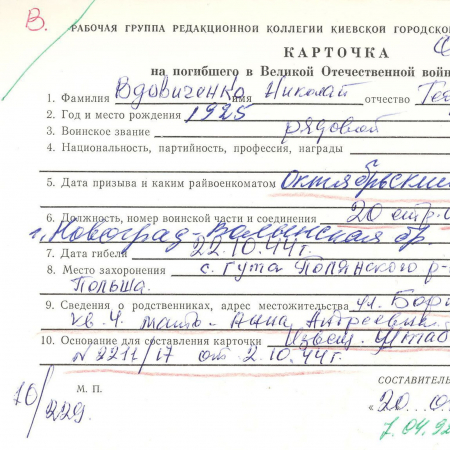 В.
РАБОЧАЯ ГРУППА РЕДАКЦИОННОЙ КОЛЛЕГИИ КИЕВСКОЙ ГОРОДСКО
КАРТОЧКА
на погибшего в Великой Отечественной войн
1. Фамилия Вдовиченко имя Николай отчество
2. Год и место рождения 1925
3. Воинское звание рядовой
4. Национальность, партийность, профессия, награды
5. Дата призыва и каким райвоенкоматом Октябрьский
6. Должность, номер воинской части и соединения 20 стр.
г. Новоград-Волынская бр
7. Дата гибели 22.10.44г.
8. Место захоронения с. Гута Полянского р-
Польша.
9. Сведения о родственниках, адрес местожительства ул. Бор
кв. 4. мать - Анна Андреевна
10. Основание для составления карточки Извещ. Штаб
№ 2211/17 от 2.10.44г.
М. П.
СОСТАВИТЕЛЬ
10/229.
«20
7.04.92